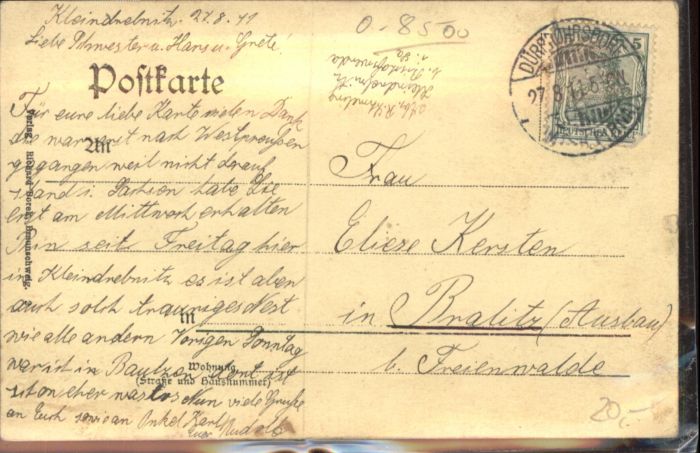 Kleindrebnitz, 27.8.11
Liebe Schwester u. Hans u. Grete!
Postkarte
Für eure liebe Karte vielen Dank
die war erst nach Westpreußen
An
gegangen weil nicht drauf
stand i. Sachsen habe Sie
erst am Mittwoch erhalten
bin seit Freitag hier
in Kleindrebnitz es ist aben
auch solch trauriges Nest
in
wie alle andern Vorigen Sonntag
war ich in Bautzen dort ist
Wohnung
(Straße und Hausnummer)
schon eher was los Nun viele Grüße
an Euch sowie an Onkel Karl
Euer Rudolf
Verlag: Richard Borek, Braunschweig.
0-8500
Kleindrebnitz
b. Bischofswerda
i. Sa
DÜRRRÖHRSDORF
27.8.11.
5
Frau
Elieze Kersten
in Bralitz (Ausbau)
b. Freienwalde
20,-